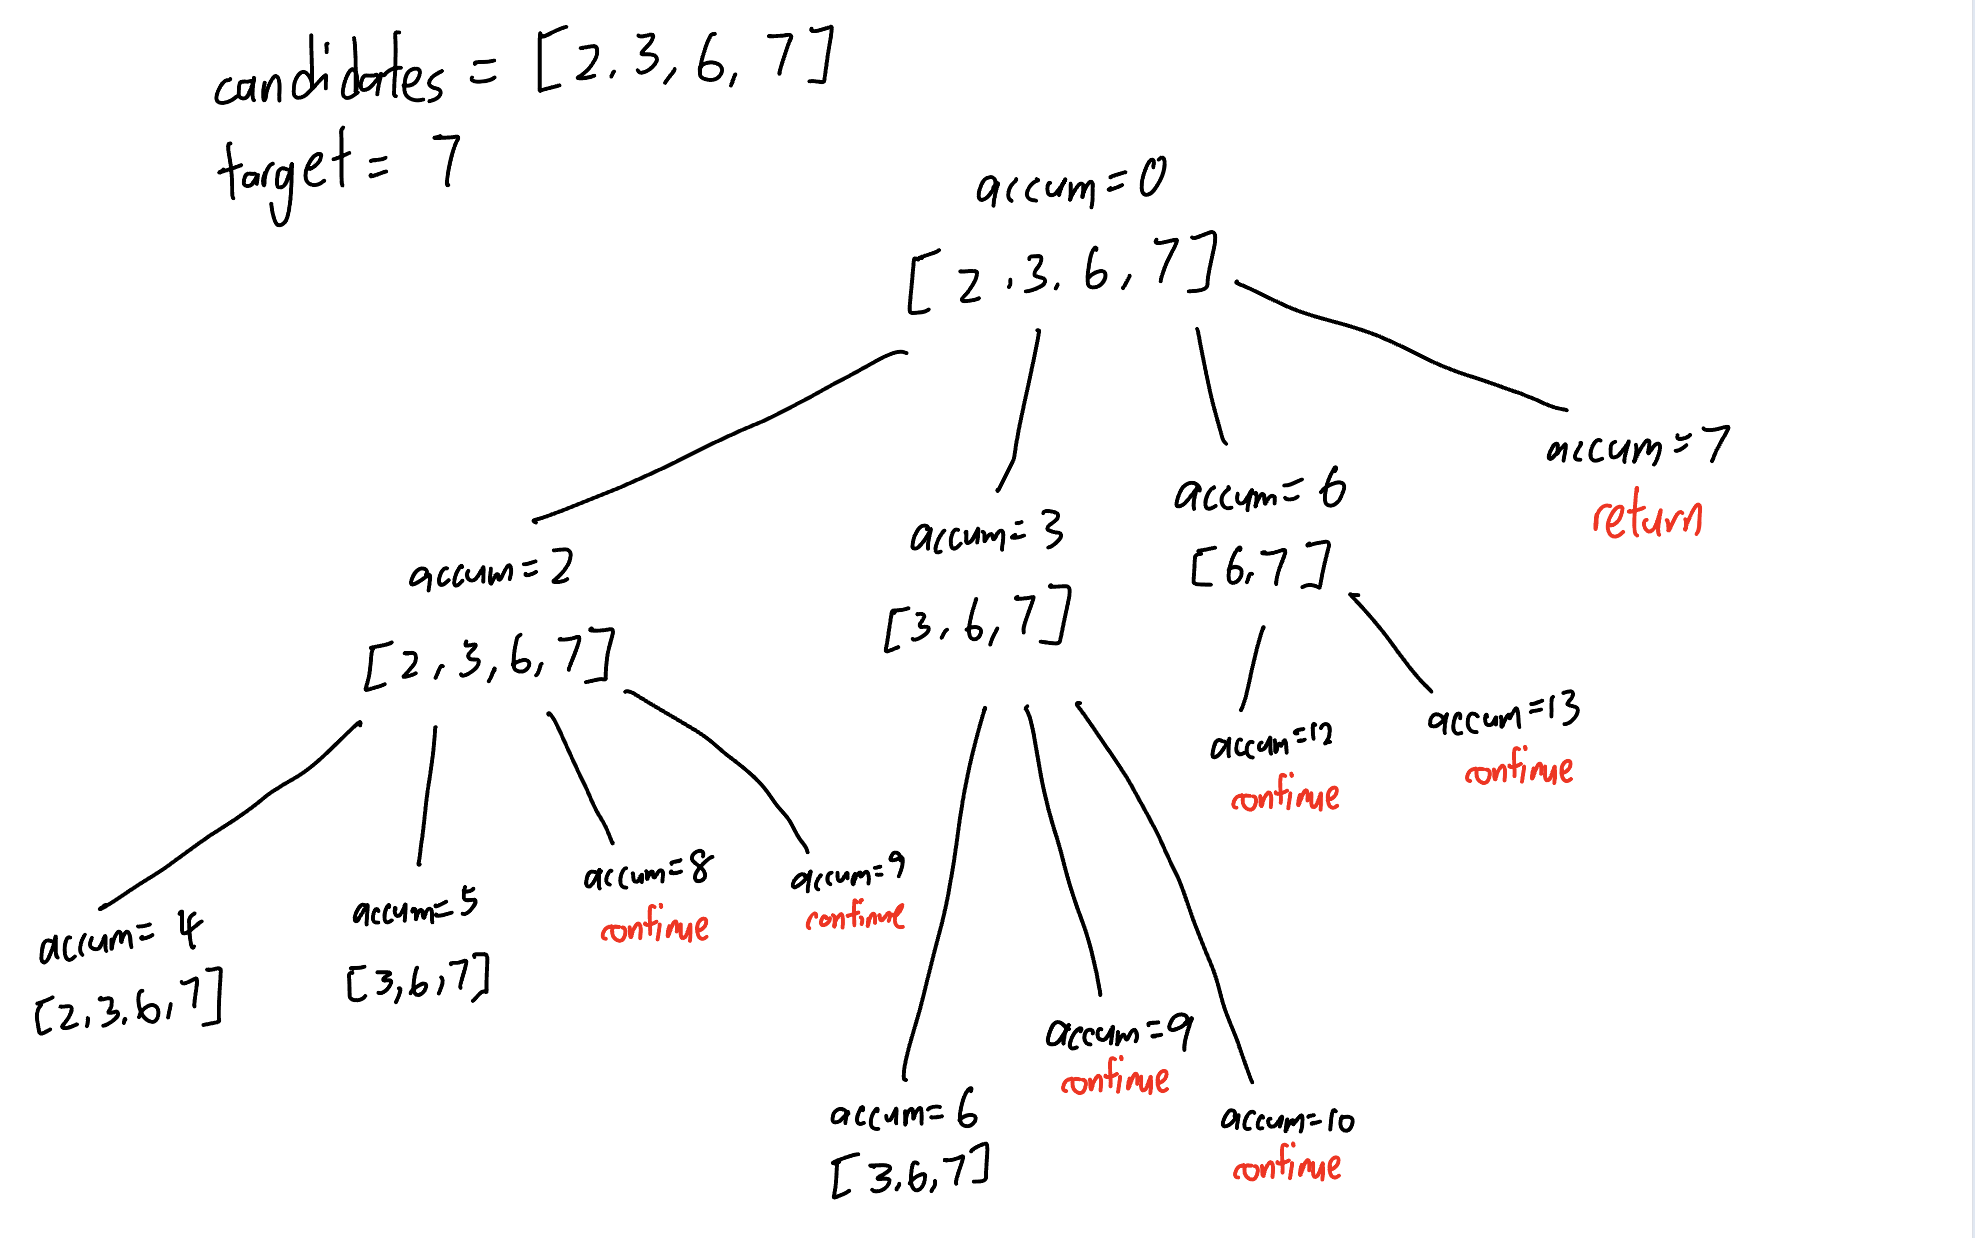 candidates = [2.3, 6, 7]
target = 7
accum=0
[2.3.6,7]
accum=2
[2,3,6,7]
accum=3
[3,6,7]
accum=6
[6,7]
accum=7
return
accum=4
[2,3.6,7]
accum=5
[3,6,7]
accum=8
continue
accum=9
continue
accum=6
[3.6,7]
accum=9
continue
accum=10
continue
accum=12
continue
accum=13
continue